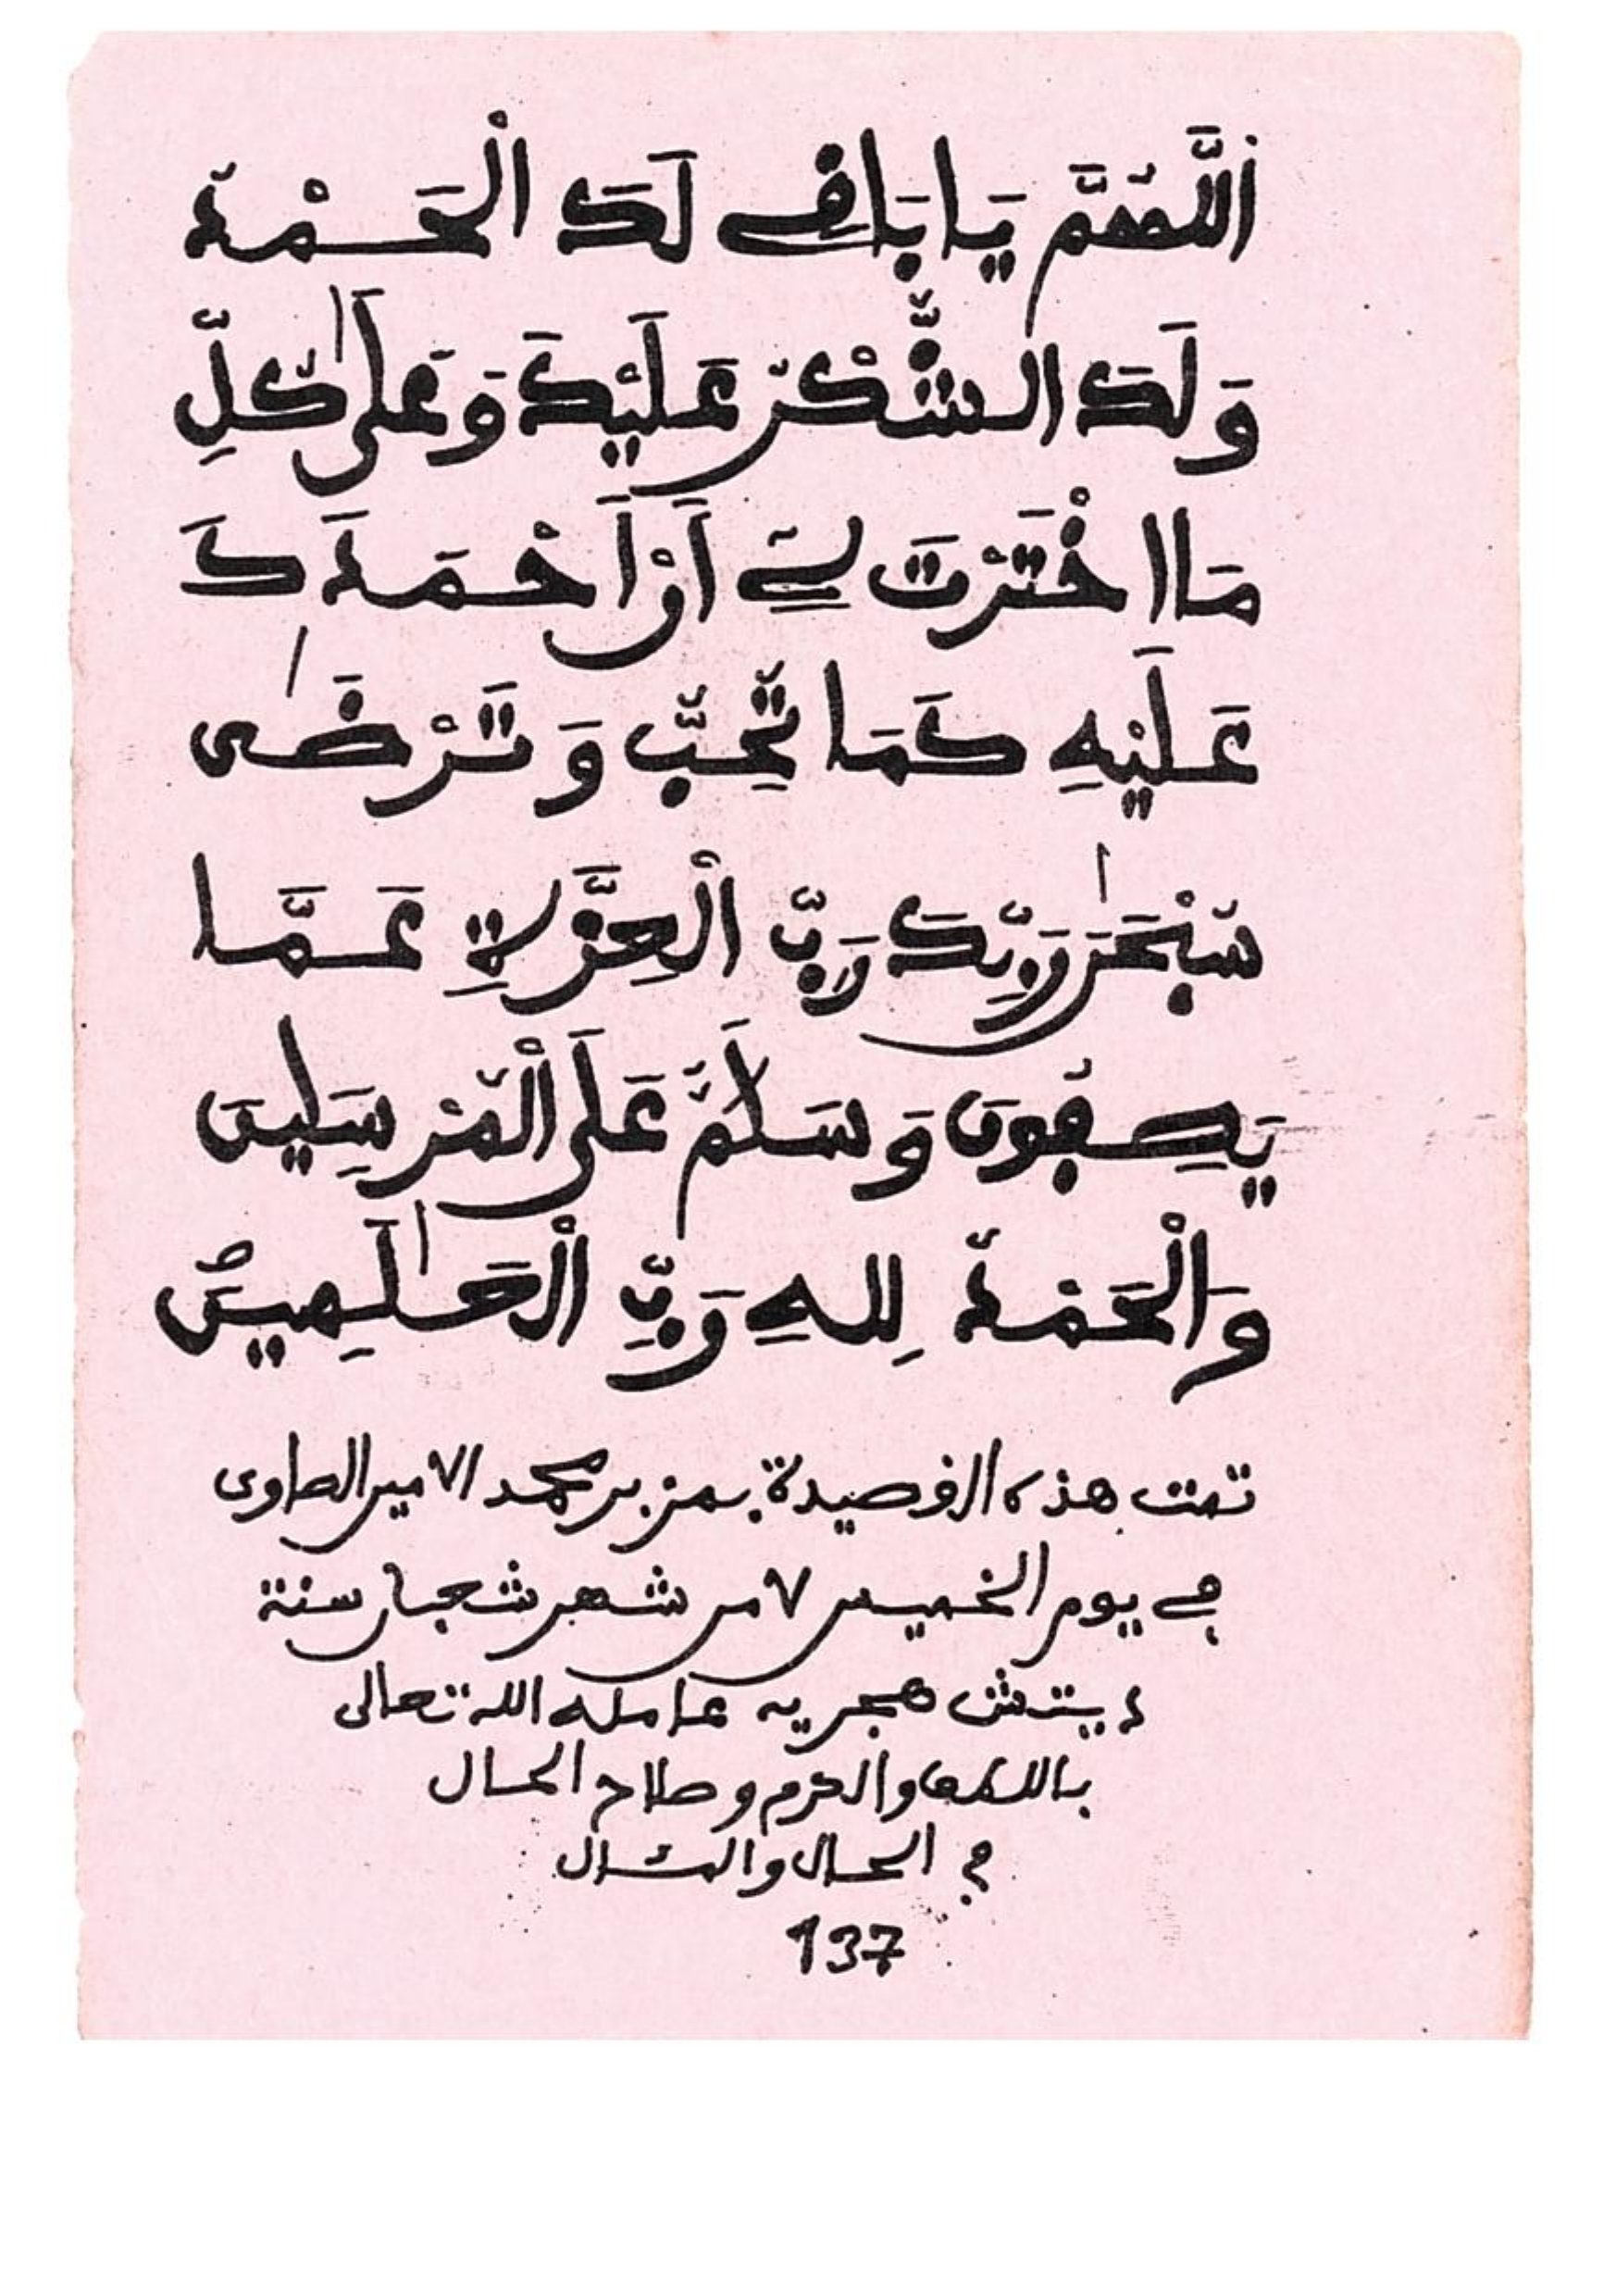 اَللَّهُمَّ يَا بَاقِي لَكَ الْحَمْدُ
وَلَكَ الشُّكْرُ عَلَيْكَ وَعَلَى كُلِّ
مَا اخْتَرْتَ لِي أَنْ أَحْمَدَكَ
عَلَيْهِ كَمَا تُحِبُّ وَتَرْضَى
سُبْحَٰنَ رَبِّكَ رَبِّ الْعِزَّةِ عَمَّا
يَصِفُونَ وَسَلَٰمٌ عَلَى الْمُرْسَلِينَ
وَالْحَمْدُ لِلهِ رَبِّ الْعَٰلَمِينَ
تمت هذه القصيدة بمن بن محمد الامين الصاوى
في يوم الخميس ٧ من شهر شعبان سنة
هجرية عامله الله تعالى
باللطف والكرم وصلاح الحال
في الحال والمئال
137